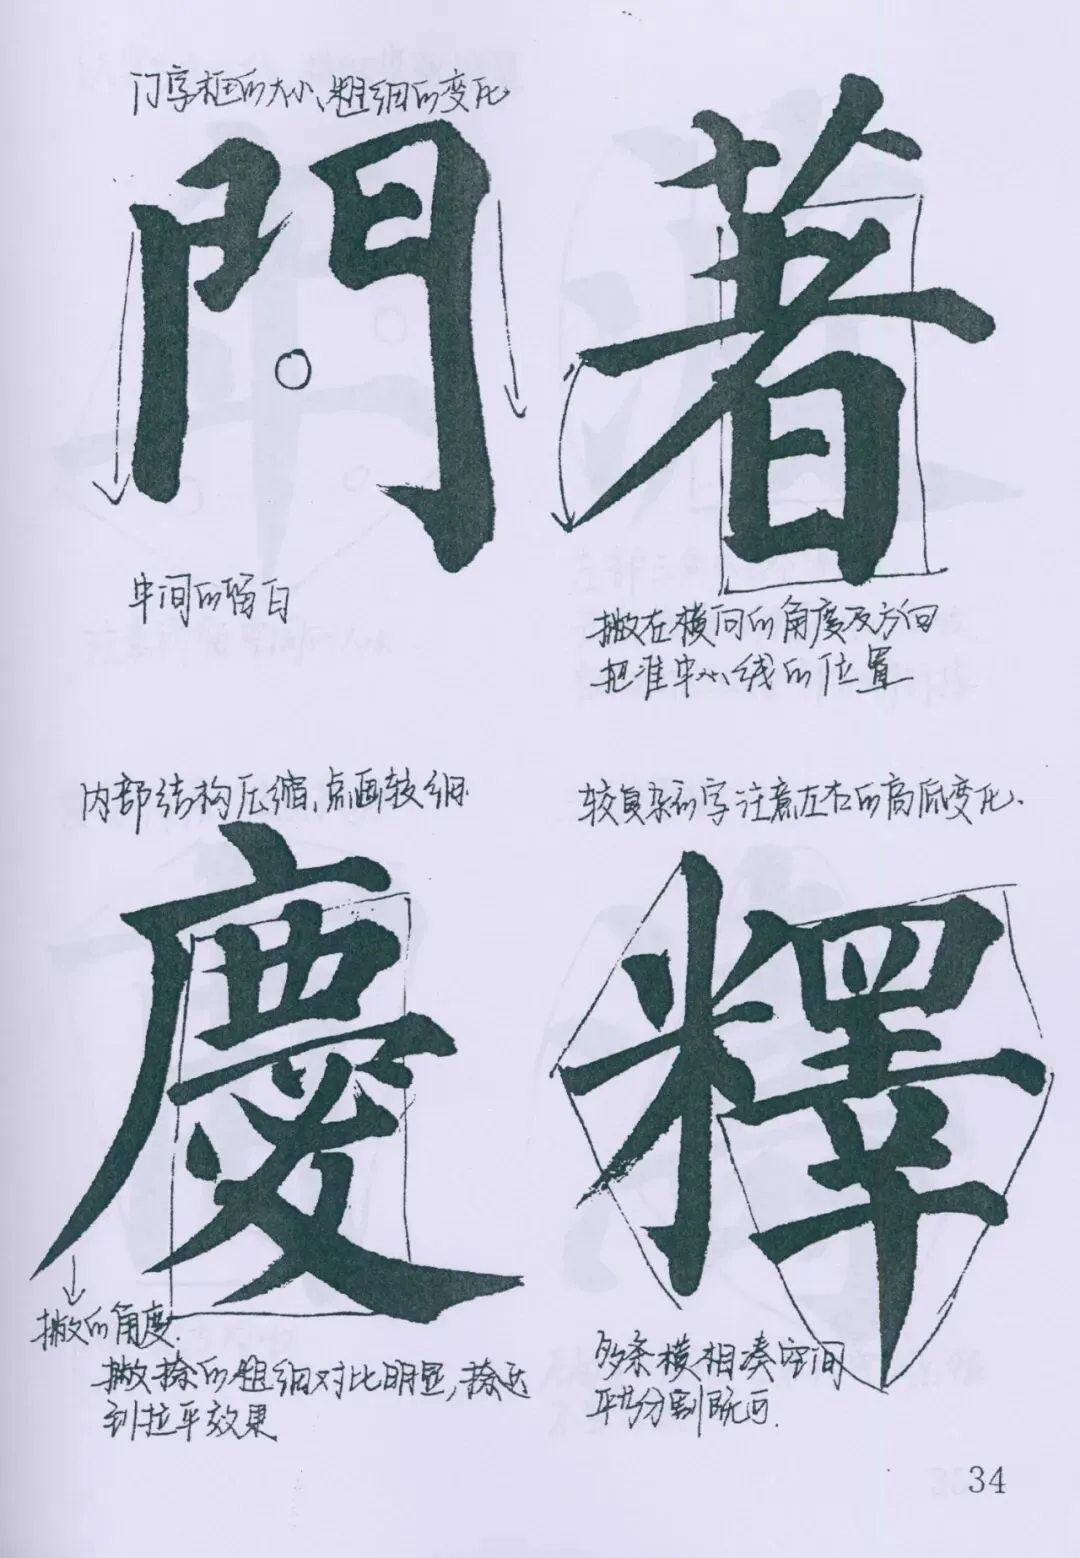 门字框的大小、粗细的变化
門
中间的留白
著
撇在横向的角度及方向
把准中心线的位置
内部结构压缩,点画较细
慶
撇的角度.
撇捺的粗细对比明显,捺达
到拉平效果
较复杂的字注意左右的高低变化.
釋
多条横相凑空间
平均分割既可.
34